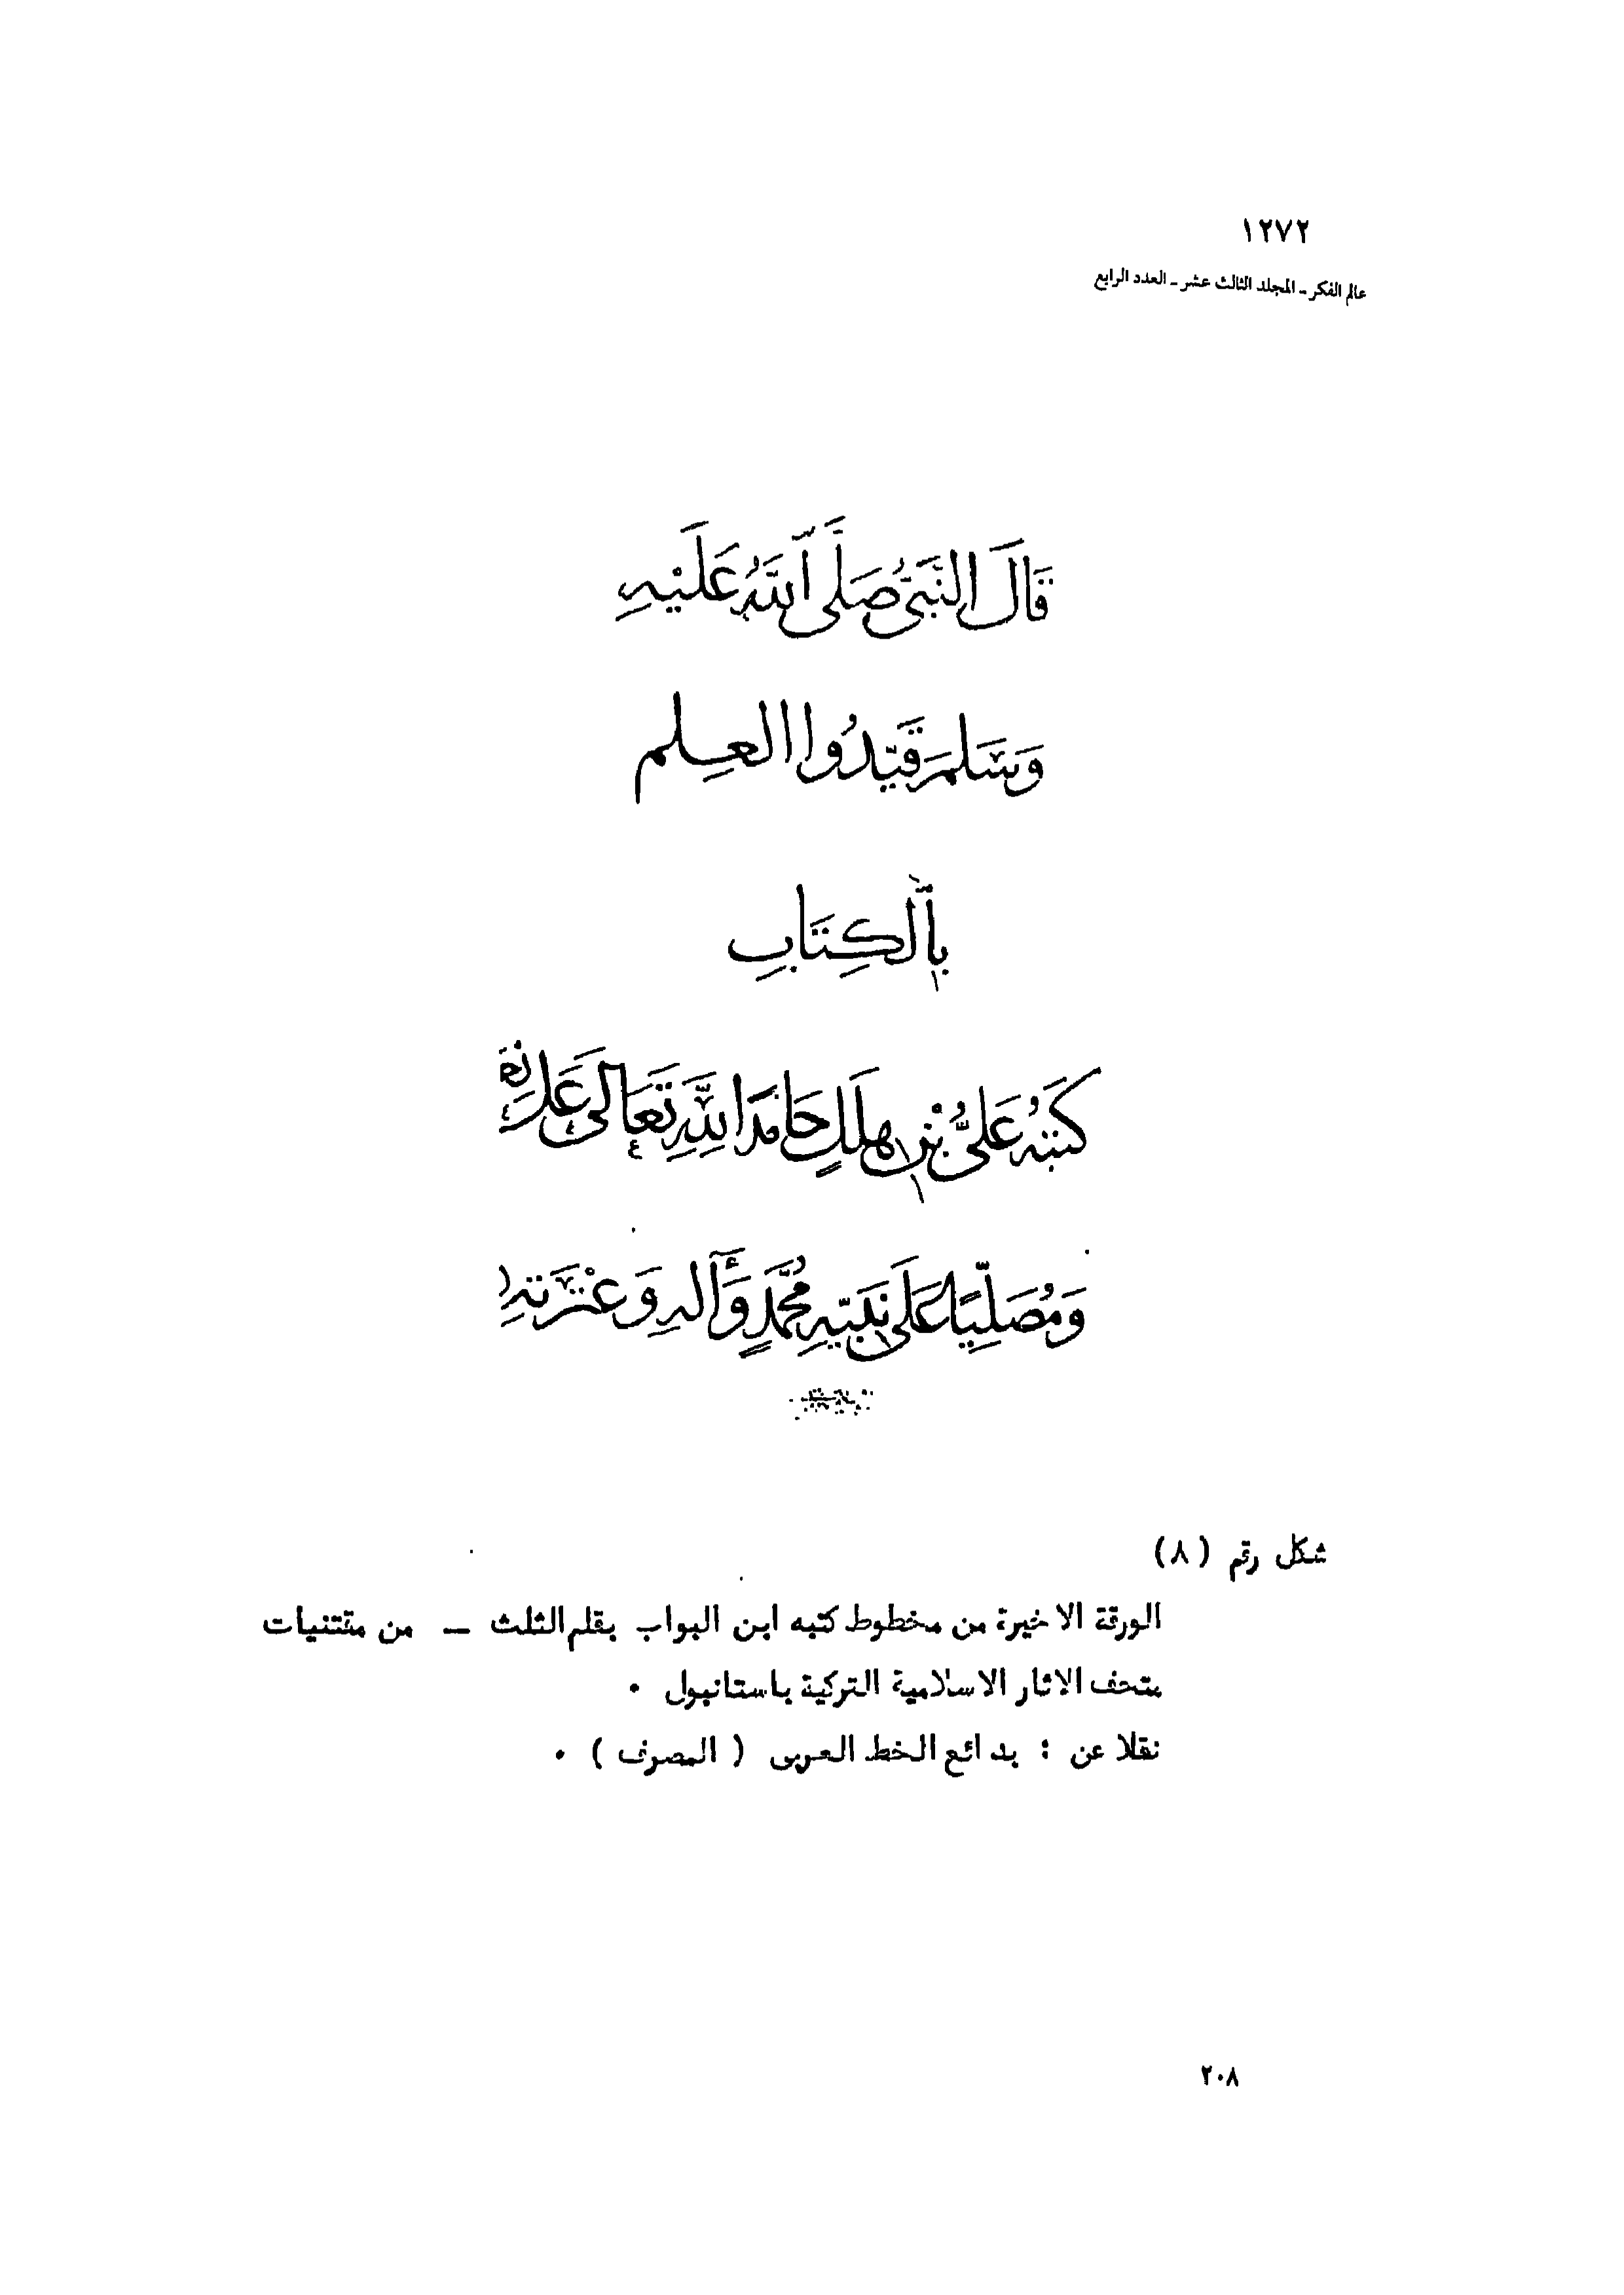 ١٢٧٢
عالم الفكر - المجلد الثالث عشر - العدد الرابع
قَالَ النَّبِيُّ صَلَّى اللَّهُ عَلَيْهِ
وَسَلَّمَ قَيِّدُوا العِلم
بِالْكِتَابِ
كَتَبَهُ عَلِيُّ بْنُ هِلَالٍ حَامِدًا لِلَّهِ تَعَالَى عَلَى نِعَمِهِ
وَمُصَلِّيًا عَلَى نَبِيِّهِ مُحَمَّدٍ وَآلِهِ وَعِتْرَتِهِ
شكل رقم (٨)
الورقة الاخيرة من مخطوط كتبه ابن البواب بقلم الثلث — من مقتنيات
متحف الاثار الاسلامية التركية باستانبول .
نقلا عن : بدائع الخط العربى ( المصرف ) .
٢٠٨